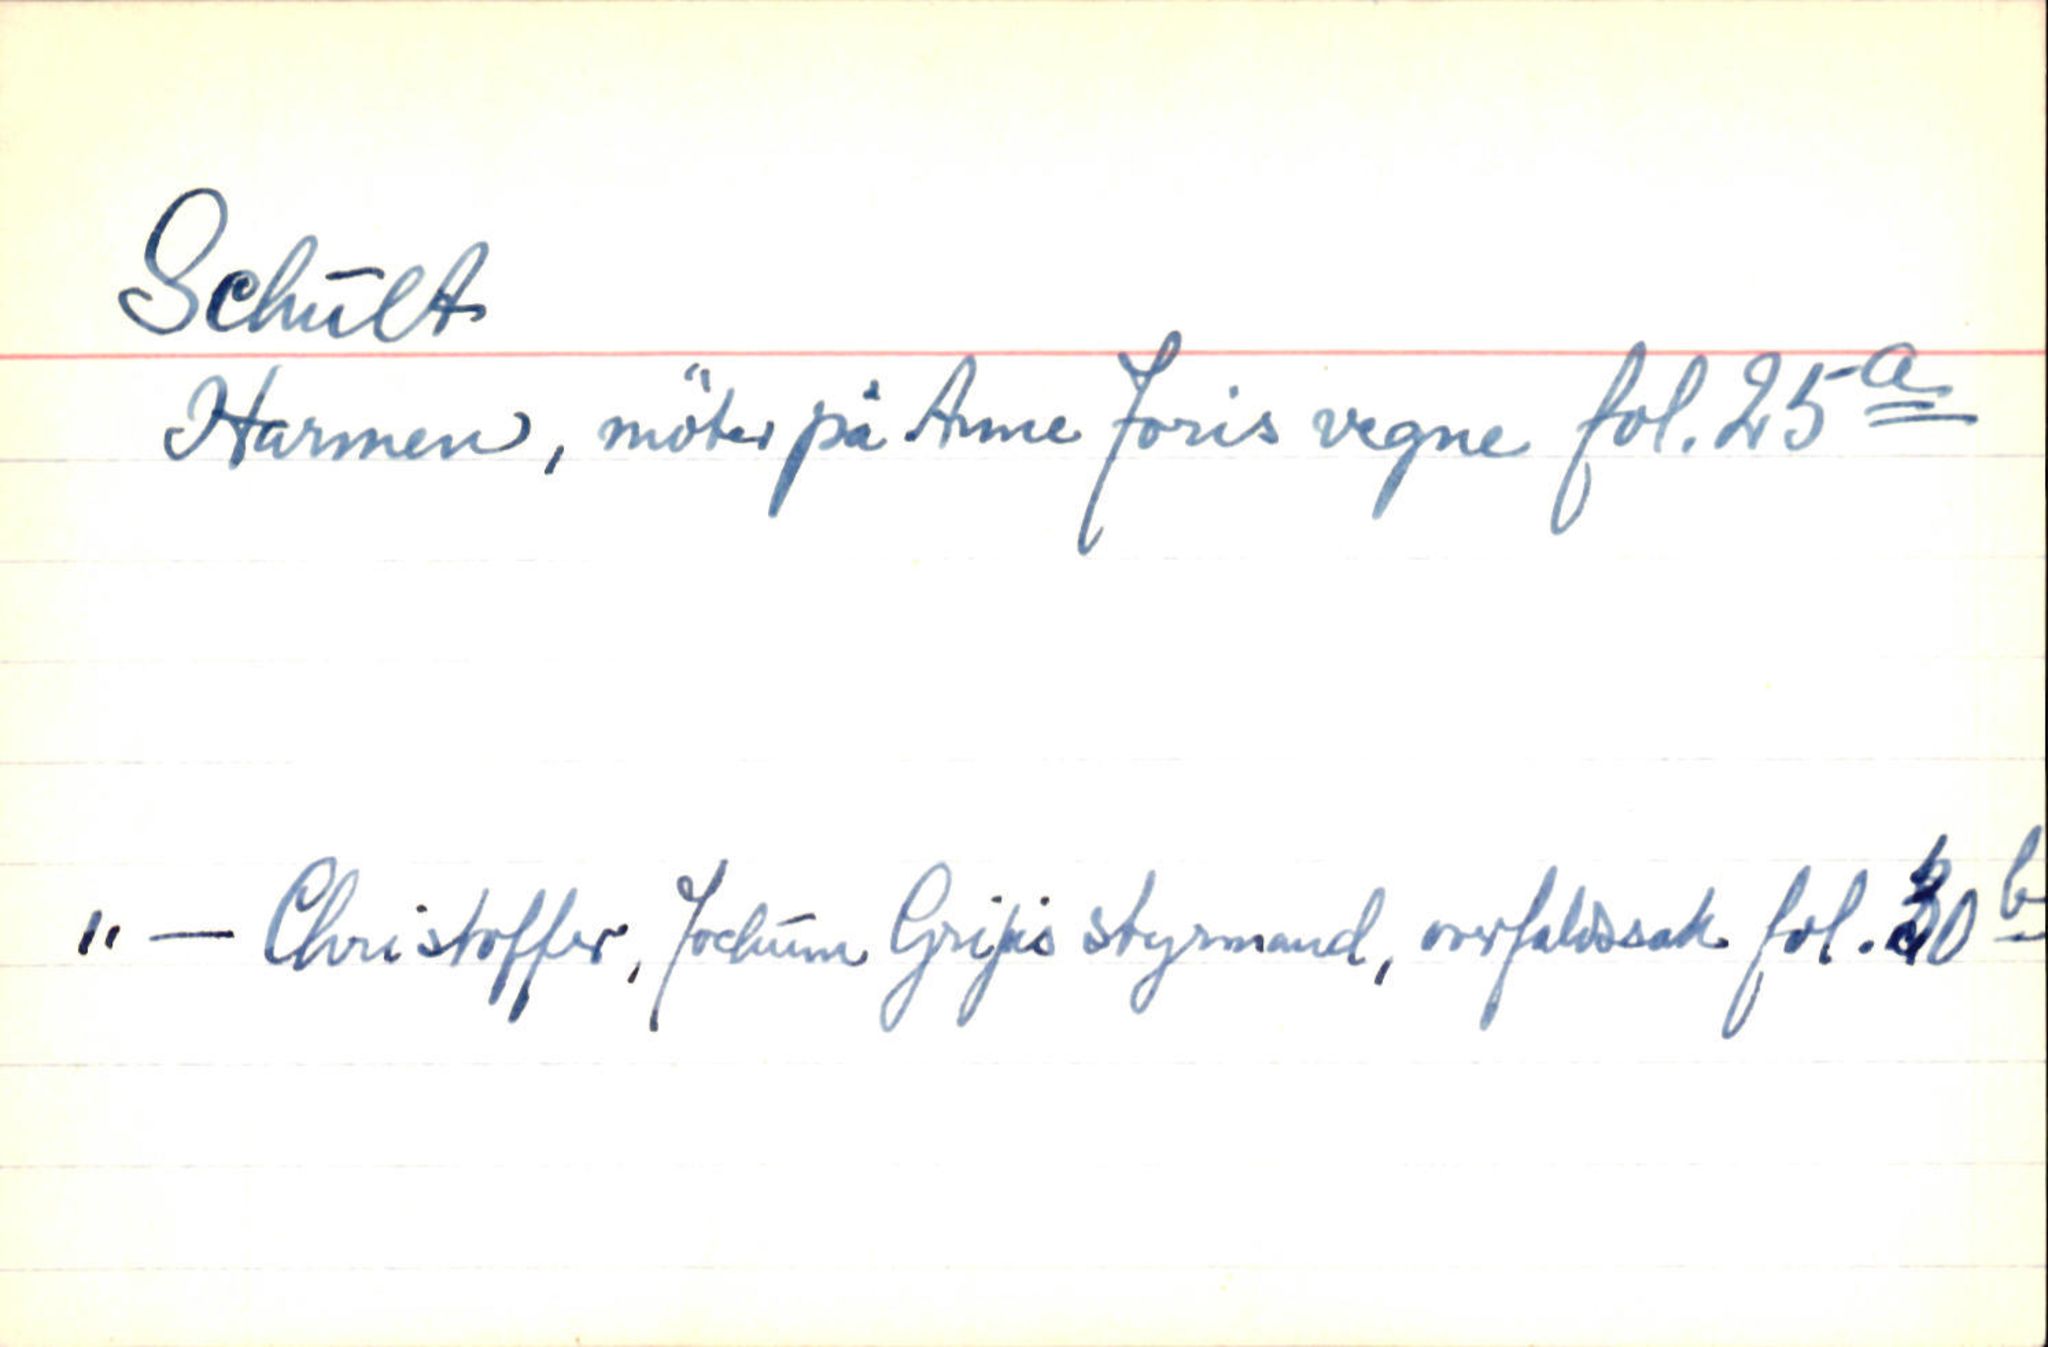 Schült
Harmen, möter på Anne Joris vegne fol. 25 a
" — Christoffer, Jochum Gripis styrmand, overfaldssak fol. b